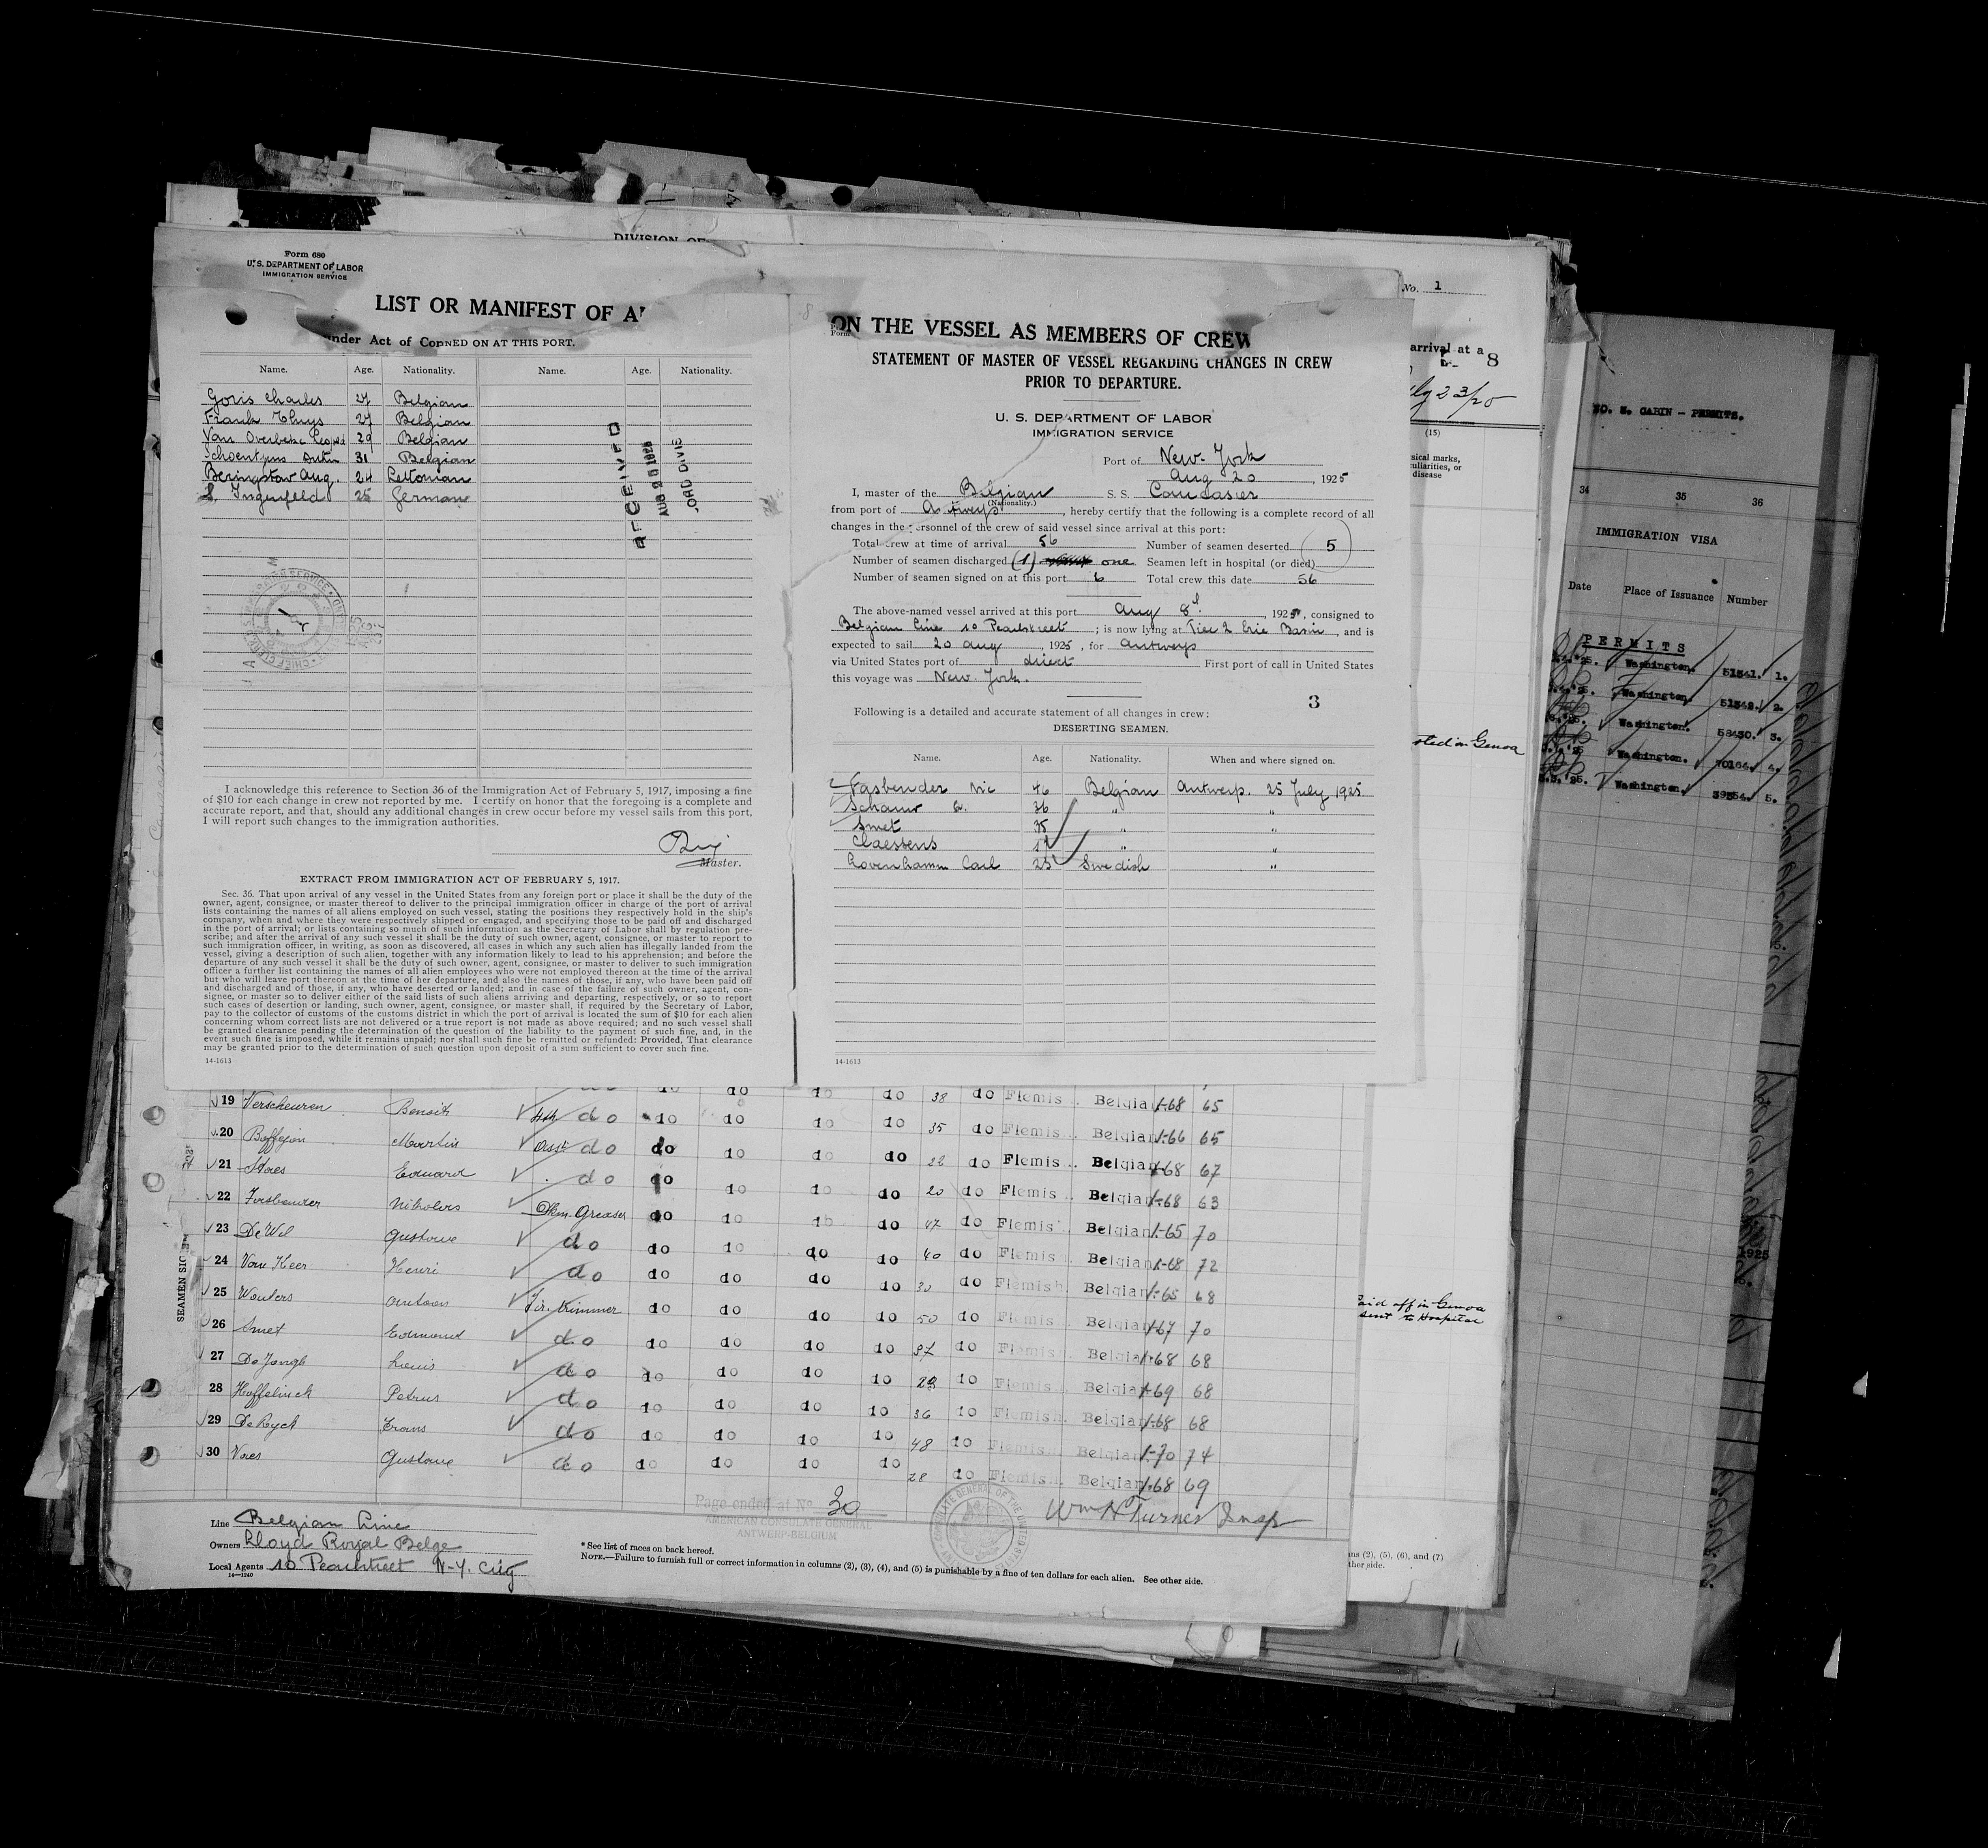 DIVISION OF
Form 680
U. S. DEPARTMENT OF LABOR
IMMIGRATION SERVICE
LIST OR MANIFEST OF A
nder Act of Co
NED ON AT THIS PORT.
Name. Age. Nationality. Name. Age. Nationality.
Goris Charles 27 Belgian
Frank Thuys 27 Belgian
Van Overbeke Leopold 29 Belgian
Schoentjens 31 Belgian
Beringstow Aug. 24 Lettonian
S. Ingenfeld 25 German
RECEIVED
AUG 20 1925
ORD DIVIS
I acknowledge this reference to Section 36 of the Immigration Act of February 5, 1917, imposing a fine
of $10 for each change in crew not reported by me. I certify on honor that the foregoing is a complete and
accurate report, and that, should any additional changes in crew occur before my vessel sails from this port,
I will report such changes to the immigration authorities.
Master.
EXTRACT FROM IMMIGRATION ACT OF FEBRUARY 5, 1917.
Sec. 36. That upon arrival of any vessel in the United States from any foreign port or place it shall be the duty of the
owner, agent, consignee, or master thereof to deliver to the principal immigration officer in charge of the port of arrival
lists containing the names of all aliens employed on such vessel, stating the positions they respectively hold in the ship's
company, when and where they were respectively shipped or engaged, and specifying those to be paid off and discharged
in the port of arrival; or lists containing so much of such information as the Secretary of Labor shall by regulation pre-
scribe; and after the arrival of any such vessel it shall be the duty of such owner, agent, consignee, or master to report to
such immigration officer, in writing, as soon as discovered, all cases in which any such alien has illegally landed from the
vessel, giving a description of such alien, together with any information likely to lead to his apprehension; and before the
departure of any such vessel it shall be the duty of such owner, agent, consignee, or master to deliver to such immigration
officer a further list containing the names of all alien employees who were not employed thereon at the time of the arrival
but who will leave port thereon at the time of her departure, and also the names of those, if any, who have been paid off
and discharged and of those, if any, who have deserted or landed; and in case of the failure of such owner, agent, con-
signee, or master so to deliver either of the said lists of such aliens arriving and departing, respectively, or so to report
such cases of desertion or landing, such owner, agent, consignee, or master, shall, if required by the Secretary of Labor,
pay to the collector of customs of the customs district in which the port of arrival is located the sum of $10 for each alien
concerning whom correct lists are not delivered or a true report is not made as above required; and no such vessel shall
be granted clearance pending the determination of the question of the liability to the payment of such fine, and, in the
event such fine is imposed, while it remains unpaid; nor shall such fine be remitted or refunded: Provided, That clearance
may be granted prior to the determination of such question upon deposit of a sum sufficient to cover such fine.
14-1613
ON THE VESSEL AS MEMBERS OF CREW
STATEMENT OF MASTER OF VESSEL REGARDING CHANGES IN CREW
PRIOR TO DEPARTURE.
U. S. DEPARTMENT OF LABOR
IMMIGRATION SERVICE
Port of New-York
Aug 20, 1925
I, master of the Belgian S. S. Comdasier
(Nationality.)
from port of Antwerp, hereby certify that the following is a complete record of all
changes in the personnel of the crew of said vessel since arrival at this port:
Total crew at time of arrival 56 Number of seamen deserted 5
Number of seamen discharged (1) one Seamen left in hospital (or died)
Number of seamen signed on at this port 6 Total crew this date 56
The above-named vessel arrived at this port Aug 8, 1925, consigned to
Belgian Line 10 Pearlstreet; is now lying at Pier 2 Erie Basin, and is
expected to sail 20 Aug, 1925, for Antwerp
via United States port of direct First port of call in United States
this voyage was New-York.
3
Following is a detailed and accurate statement of all changes in crew:
DESERTING SEAMEN.
Name. Age. Nationality. When and where signed on.
Fasbender Nic 46 Belgian Antwerp. 25 July 1925
Schauw 36 " "
Smet 35 " "
Claessens " "
Lovenhamn Carl 25 Swedish "
14-1613
No. 1
arrival at a
8
(15)
sical marks,
culiarities, or
disease
sted in Genoa
Paid off in Genoa
sent to Hospital
ns (2), (5), (6), and (7)
ther side.
NO. 3. CABIN - PERMITS.
34 35 36
IMMIGRATION VISA
Date Place of Issuance Number
PERMITS
Washington. 51341. 1.
Washington. 51342. 2.
Washington. 58430. 3.
Washington. 70164. 4.
Washington. 39354. 5.
1925
SEAMEN SIGNE
19 Verscheuren Benoit 4th do do do do do 38 do Flemis Belgian 1-68 65
20 Boffejon Martin Asst do do do do do 35 do Flemis Belgian 1-66 65
21 Staes Edward do do do do do 22 do Flemis Belgian 1-68 67
22 Fasbender Nikolas Dkm. Greaser do do do do 20 do Flemis Belgian 1-68 63
23 De Wil Gustave do do do do do 47 do Flemis Belgian 1-65 70
24 Van Keer Henri do do do do do 40 do Flemis Belgian 1-68 72
25 Wouters Antoon Fir. trimmer do do do do 30 do Flemish Belgian 1-65 68
26 Smet Edmond do do do do do 50 do Flemis Belgian 1-67 70
27 De Jongh Louis do do do do do 37 do Flemis Belgian 1-68 68
28 Hoffelinck Petrus do do do do do 29 do Flemis Belgian 1-69 68
29 De Ryck Frans do do do do do 36 do Flemish Belgian 1-68 68
30 Vaes Gustave do do do do do 48 do Flemis Belgian 1-70 74
28 do Flemis Belgian 1-68 69
Page ended at No 30
AMERICAN CONSULATE GENERAL
ANTWERP-BELGIUM
Wm H Turner Insp
Line Belgian Line
Owners Lloyd Royal Belge
Local Agents 10 Pearlstreet N-Y. City
14-1240
* See list of races on back hereof.
NOTE.—Failure to furnish full or correct information in columns (2), (3), (4), and (5) is punishable by a fine of ten dollars for each alien. See other side.